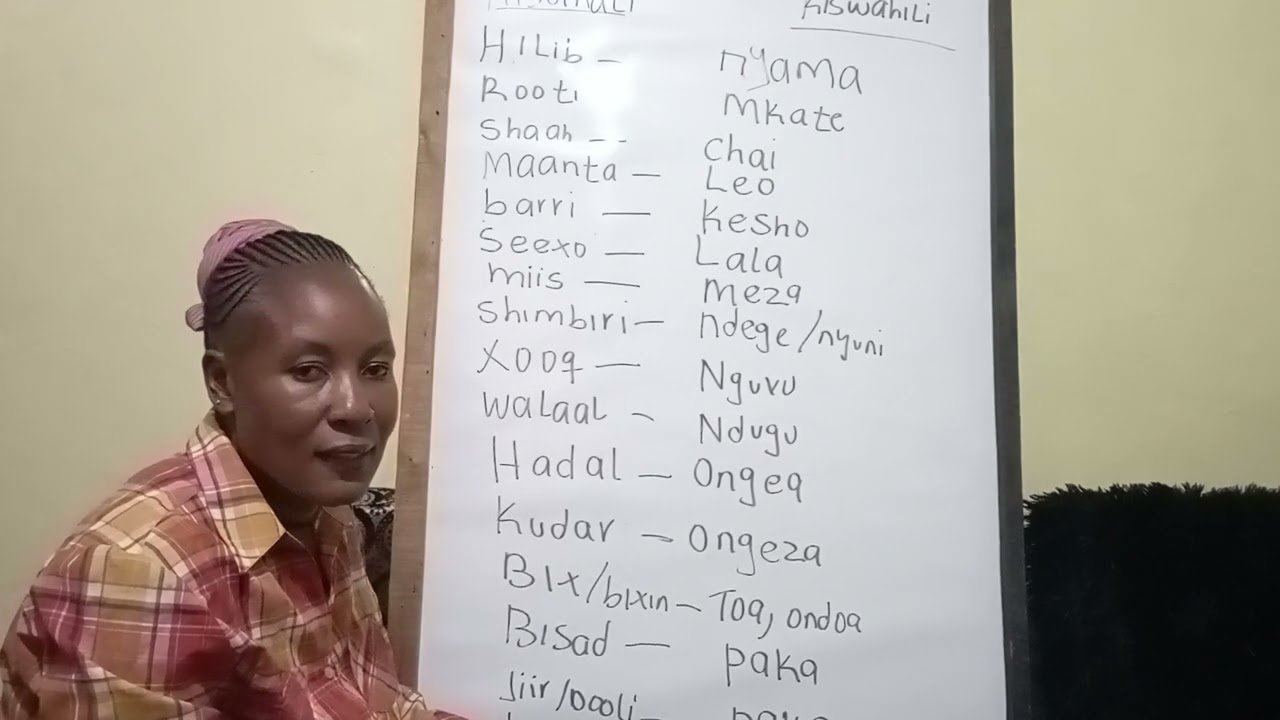 Kiswahili
HiLib – nyama
Rooti Mkate
Shaah -- Chai
Maanta — Leo
barri — Kesho
Seexo — Lala
miis — meza
Shimbiri — ndege/nyuni
Xooq — Nguvu
WaLaaL – Ndugu
Hadal — Ongea
Kudar – Ongeza
Bix/bixin – Toa, ondoa
Bisad — paka